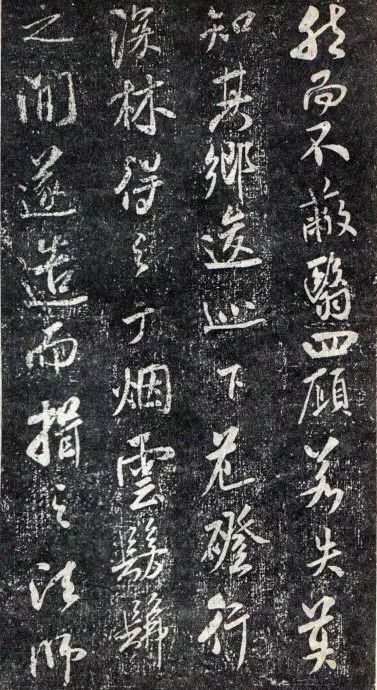 然而不蔽翳四顧若失莫
知其鄉逡巡下危磴行
深林得之于烟雲髣髴
之間遂造而揖之法師